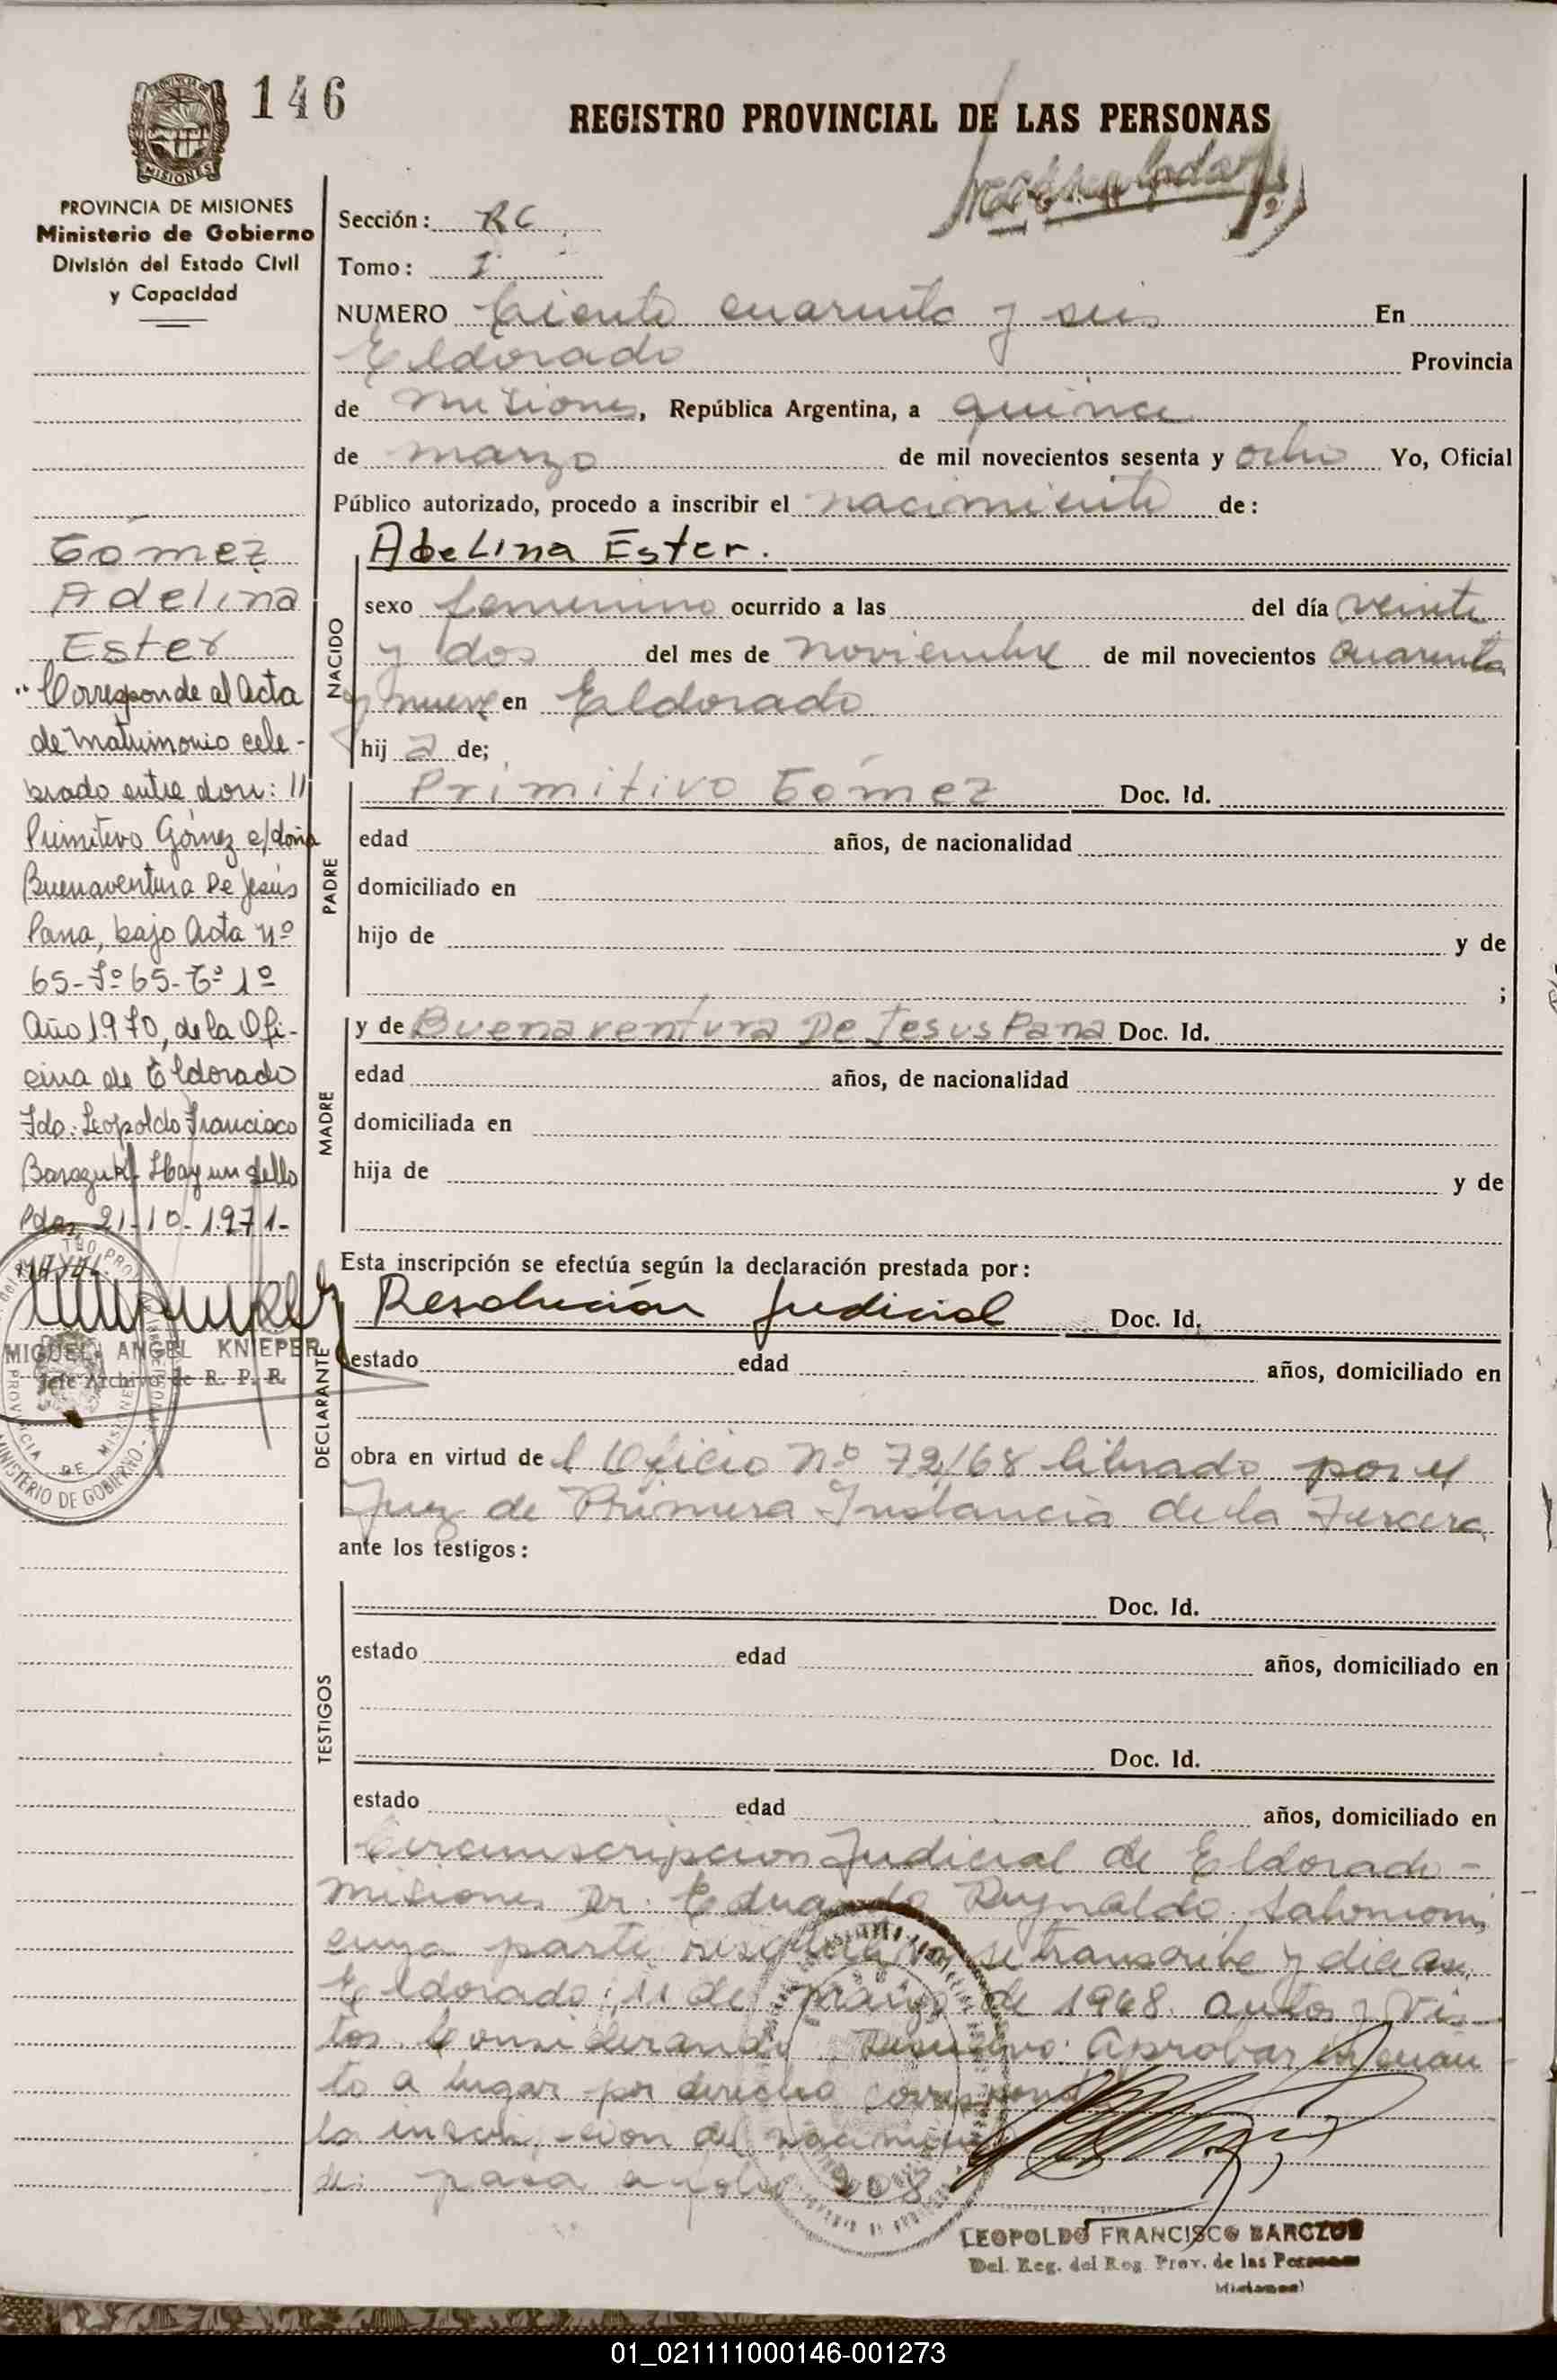 146
REGISTRO PROVINCIAL DE LAS PERSONAS
MISIONES
PROVINCIA DE MISIONES
Ministerio de Gobierno
División del Estado Civil
y Capacidad
Gómez
Adelina
Ester
"Corresponde al Acta
de Matrimonio cele-
brado entre don: //
Primitivo Gómez c/doña
Buenaventura De Jesús
Pana, bajo Acta Nº
65-Fº65-Tº 1º
Año 1970, de la Ofi-
cina de Eldorado
Fdo: Leopoldo Francisco
Hay un sello
Pdas, 21-10-1971-
MIGUEL ANGEL KNIEPER
Jefe Archivo de R. P. P.
MINISTERIO DE GOBIERNO
PROVINCIA DE MISIONES
Sección: RC
Tomo: I
NUMERO Ciento cuarenta y seis En
Eldorado Provincia
de Misiones, República Argentina, a quince
de marzo de mil novecientos sesenta y ocho Yo, Oficial
Público autorizado, procedo a inscribir el nacimiento de:
NACIDO
Adelina Ester.
sexo femenino ocurrido a las del día veinte
y dos del mes de noviembre de mil novecientos cuarenta
y nueve en Eldorado
hij a de;
PADRE
Primitivo Gómez Doc. Id.
edad años, de nacionalidad
domiciliado en
hijo de y de
;
MADRE
y de Buenaventura De Jesus Pana Doc. Id.
edad años, de nacionalidad
domiciliada en
hija de y de
Esta inscripción se efectúa según la declaración prestada por:
DECLARANTE
Resolución Judicial Doc. Id.
estado edad años, domiciliado en
obra en virtud de l Oficio Nº 72/68 librado por el
Juez de Primera Instancia de la Tercera
ante los testigos:
TESTIGOS
Doc. Id.
estado edad años, domiciliado en
Doc. Id.
estado edad años, domiciliado en
Circunscripcion Judicial de Eldorado -
Misiones Dr. Eduardo Reynaldo
cuya parte resolutiva se transcribe y dice asi:
Eldorado; 11 de marzo de 1968. autos y Vis-
tos. Considerando Resuelvo: Aprobar en cuan-
to a lugar por derecho corresponda
la inscripcion del nacimiento
de: pasa a folio 208
LEOPOLDO FRANCISCO BARCZUK
Del. Reg. del Reg. Prov. de las Personas
Misiones)
01_021111000146-001273